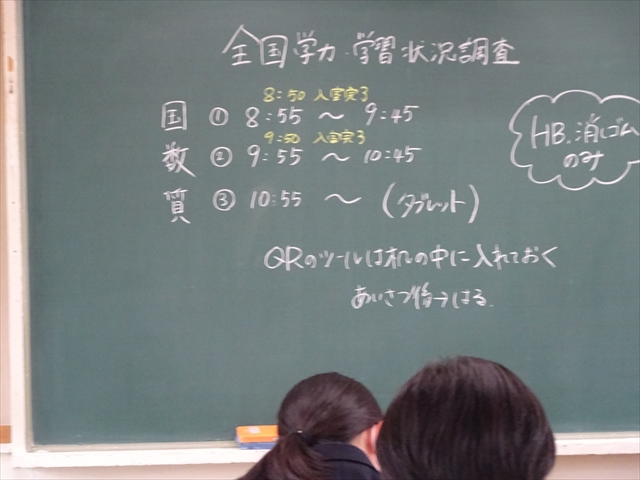 全国学力・学習状況調査
8:50 入室完了
国 ① 8:55 〜 9:45
9:50 入室完了
数 ② 9:55 〜 10:45
質 ③ 10:55 〜 (タブレット)
HB、消しゴム
のみ
QRのシールは机の中に入れておく
あいさつ後→はる